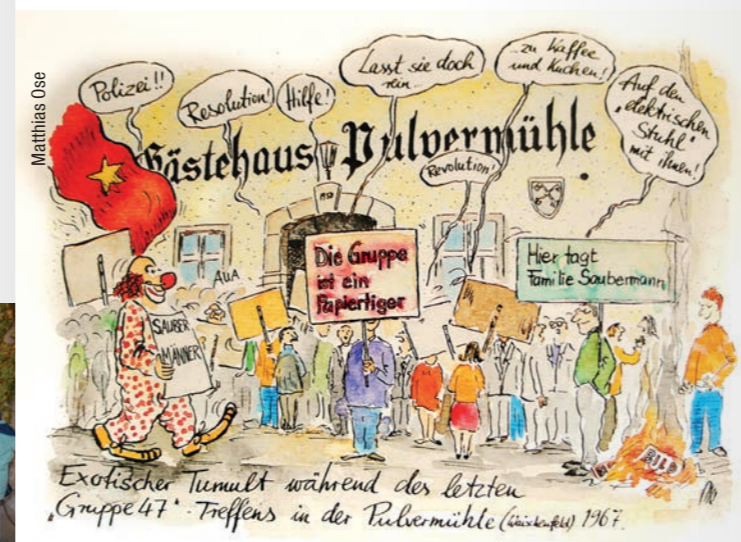 Matthias Ose
Polizei!!
Resolution!
Hilfe!
Lasst sie doch
rein...
...zu Kaffee
und Kuchen!
Auf den
"elektrischen
Stuhl"
mit ihnen!
Gästehaus Pulvermühle
Revolution!
AUA
SAUBER
MÄNNER
Die Gruppe
ist ein
Papiertiger
Hier tagt
Familie Saubermann
BILD
Exotischer Tumult während des letzten
"Gruppe 47"-Treffens in der Pulvermühle (Waischenfeld) 1967.